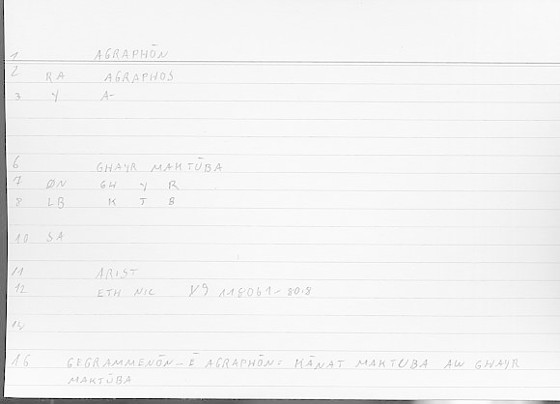 1 AGRAPHŌN
2 RA AGRAPHOS
3 Y A-
6 GHAYR MAKTŪBA
7 ØN GH Y R
8 LB K T B
10 SA
11 ARIST
12 ETH NIC 118061-80.8
14
16 GEGRAMMENŌN-Ē AGRAPHŌN: KĀNAT MAKTUBA AW GHAYR
MAKTŪBA